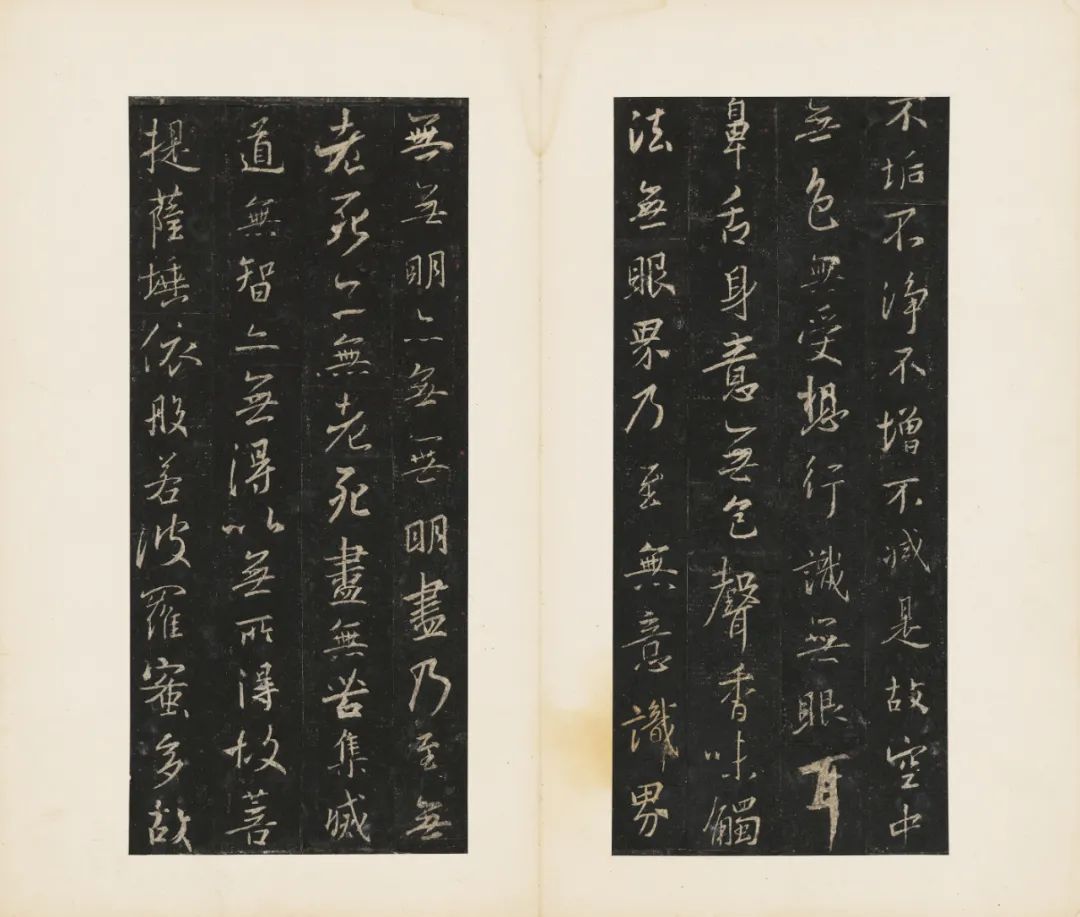 不垢不淨不增不減是故空中
無色無受想行識無眼耳
鼻舌身意無色聲香味觸
法無眼界乃至無意識界
無無明亦無無明盡乃至無
老死亦無老死盡無苦集滅
道無智亦無得以無所得故菩
提薩埵依般若波羅蜜多故